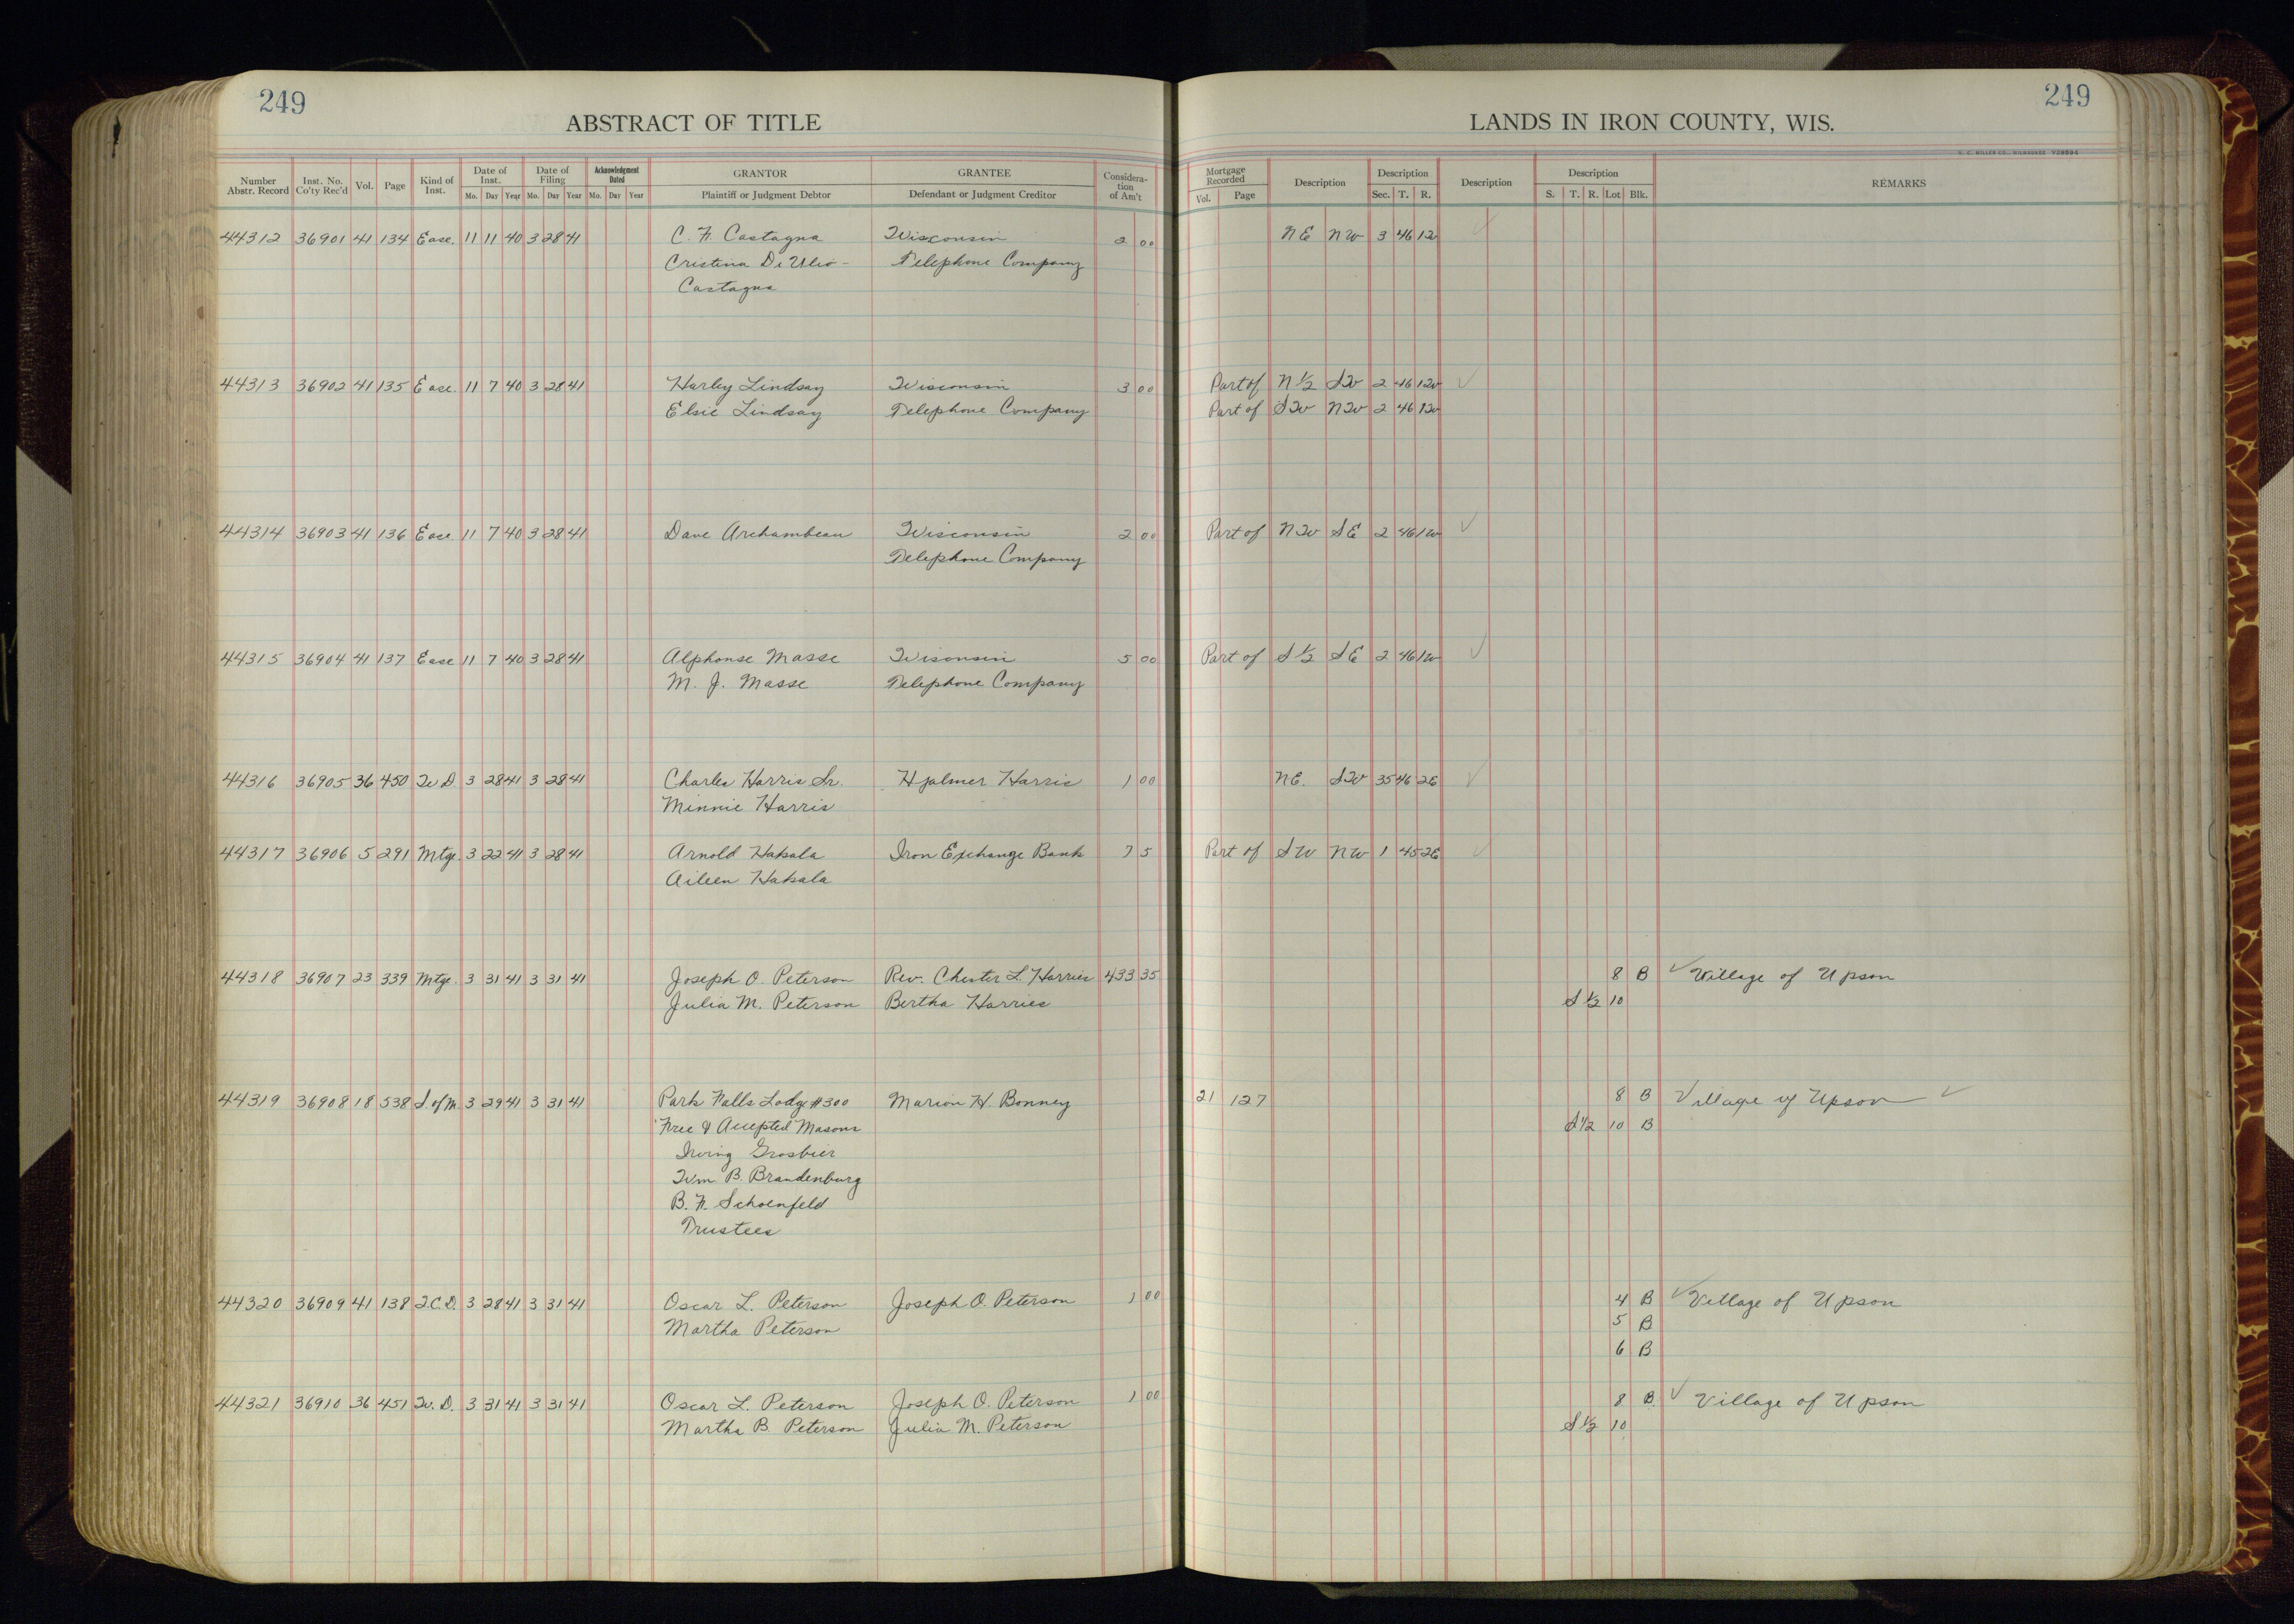 249
249
ABSTRACT OF TITLE
LANDS IN IRON COUNTY, WIS.
Number Abstr. Record | Inst. No. Co'ty Rec'd | Vol. | Page | Kind of Inst. | Date of Inst. Mo. Day Year | Date of Filing Mo. Day Year | Acknowledgment Dated Mo. Day Year | GRANTOR Plaintiff or Judgment Debtor | GRANTEE Defendant or Judgment Creditor | Consideration of Am't | Mortgage Recorded Vol. Page | Description | Description Sec. T. R. | Description | Description S. T. R. Lot Blk. | REMARKS
44312 36901 41 134 Ease. 11 11 40 3 28 41 C. F. Castagna Wisconsin 2 00 NE NW 3 46 1W ✓
Cristina DiUlio- Telephone Company
Castagna
44313 36902 41 135 Ease. 11 7 40 3 28 41 Harley Lindsay Wisconsin 3 00 Part of N 1/2 SW 2 46 1W ✓
Elsie Lindsay Telephone Company Part of SW NW 2 46 1W
44314 36903 41 136 Ease 11 7 40 3 28 41 Dave Archambeau Wisconsin 2 00 Part of NW SE 2 46 1W ✓
Telephone Company
44315 36904 41 137 Ease 11 7 40 3 28 41 Alphonse Masse Wisonsin 5 00 Part of S 1/2 SE 2 46 1W ✓
M. J. Masse Telephone Company
44316 36905 36 450 W D. 3 28 41 3 28 41 Charles Harris Sr. Hjalmer Harris 1 00 NE. SW 35 46 2E ✓
Minnie Harris
44317 36906 5 291 Mtge. 3 22 41 3 28 41 Arnold Hakala Iron Exchange Bank 75 Part of SW NW 1 45 2E ✓
Aileen Hakala
44318 36907 23 339 Mtge. 3 31 41 3 31 41 Joseph O. Peterson Rev. Chester L. Harries 433 35 8 B ✓ Village of Upson
Julia M. Peterson Bertha Harries S 1/2 10
44319 36908 18 538 S. of M. 3 29 41 3 31 41 Park Falls Lodge #300 Marion H. Bonney 21 127 8 B Village of Upson ✓
Free & Accepted Masons S 1/2 10 B
Irving Grosbier
Wm B. Brandenburg
B. F. Schoenfeld
Trustees
44320 36909 41 138 2.C.D. 3 28 41 3 31 41 Oscar L. Peterson Joseph O. Peterson 1 00 4 B ✓ Village of Upson
Martha Peterson 5 B
6 B
44321 36910 36 451 W. D. 3 31 41 3 31 41 Oscar L. Peterson Joseph O. Peterson 1 00 8 B. ✓ Village of Upson
Martha B. Peterson Julia M. Peterson S 1/2 10